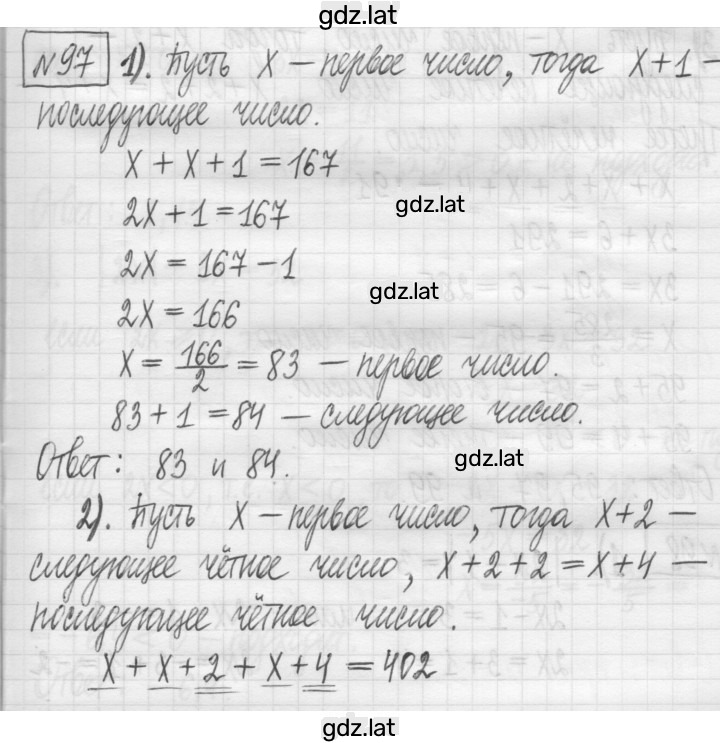 gdz.lat
№97 1). Пусть x – первое число, тогда x+1 –
последующее число.
x + x + 1 = 167
2x + 1 = 167
gdz.lat
2x = 167 – 1
gdz.lat
2x = 166
x = 166/2 = 83 – первое число.
83 + 1 = 84 – следующее число.
Ответ: 83 и 84.
gdz.lat
2). Пусть x – первое число, тогда x+2 –
следующее чётное число, x+2+2 = x+4 –
последующее чётное число.
x + x + 2 + x + 4 = 402
gdz.lat